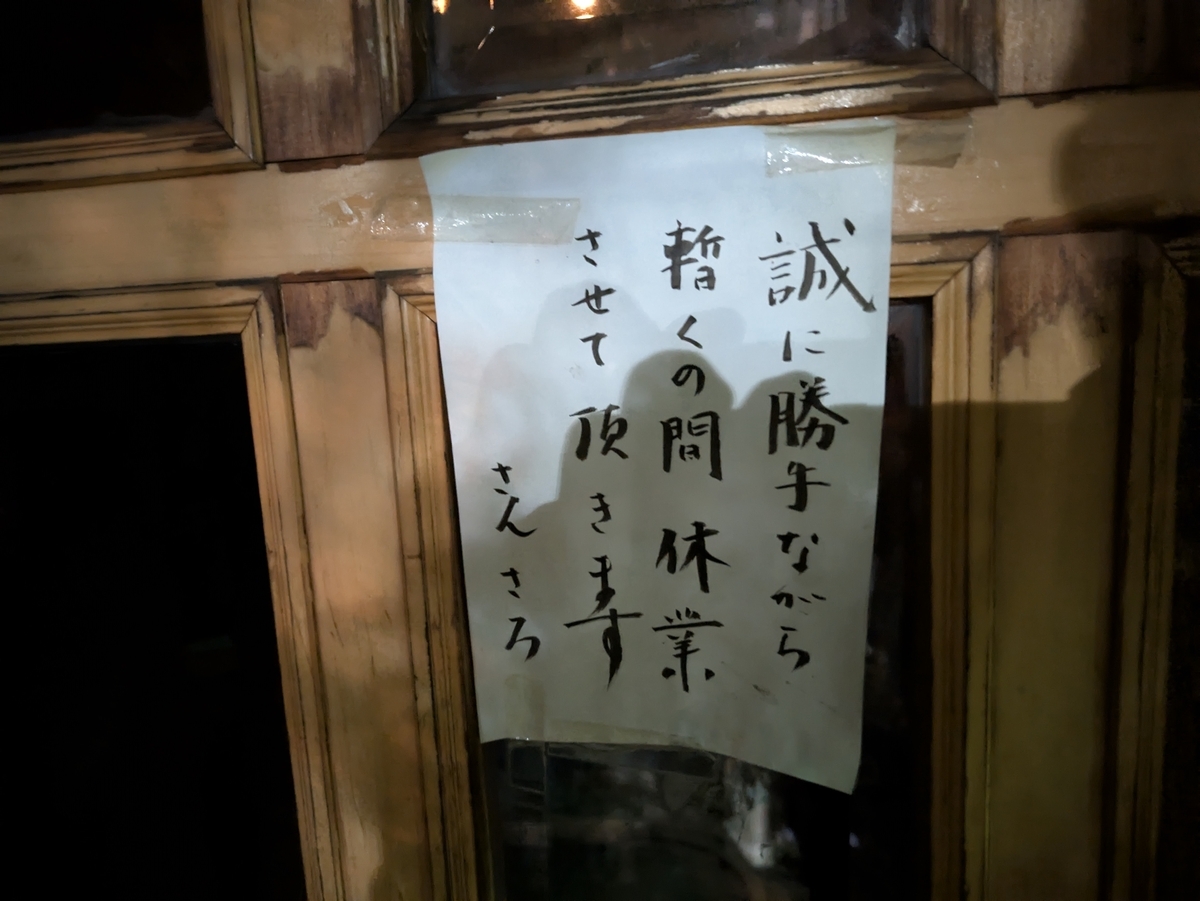 誠に勝手ながら
暫くの間 休業
させて 頂きます
さん さろ